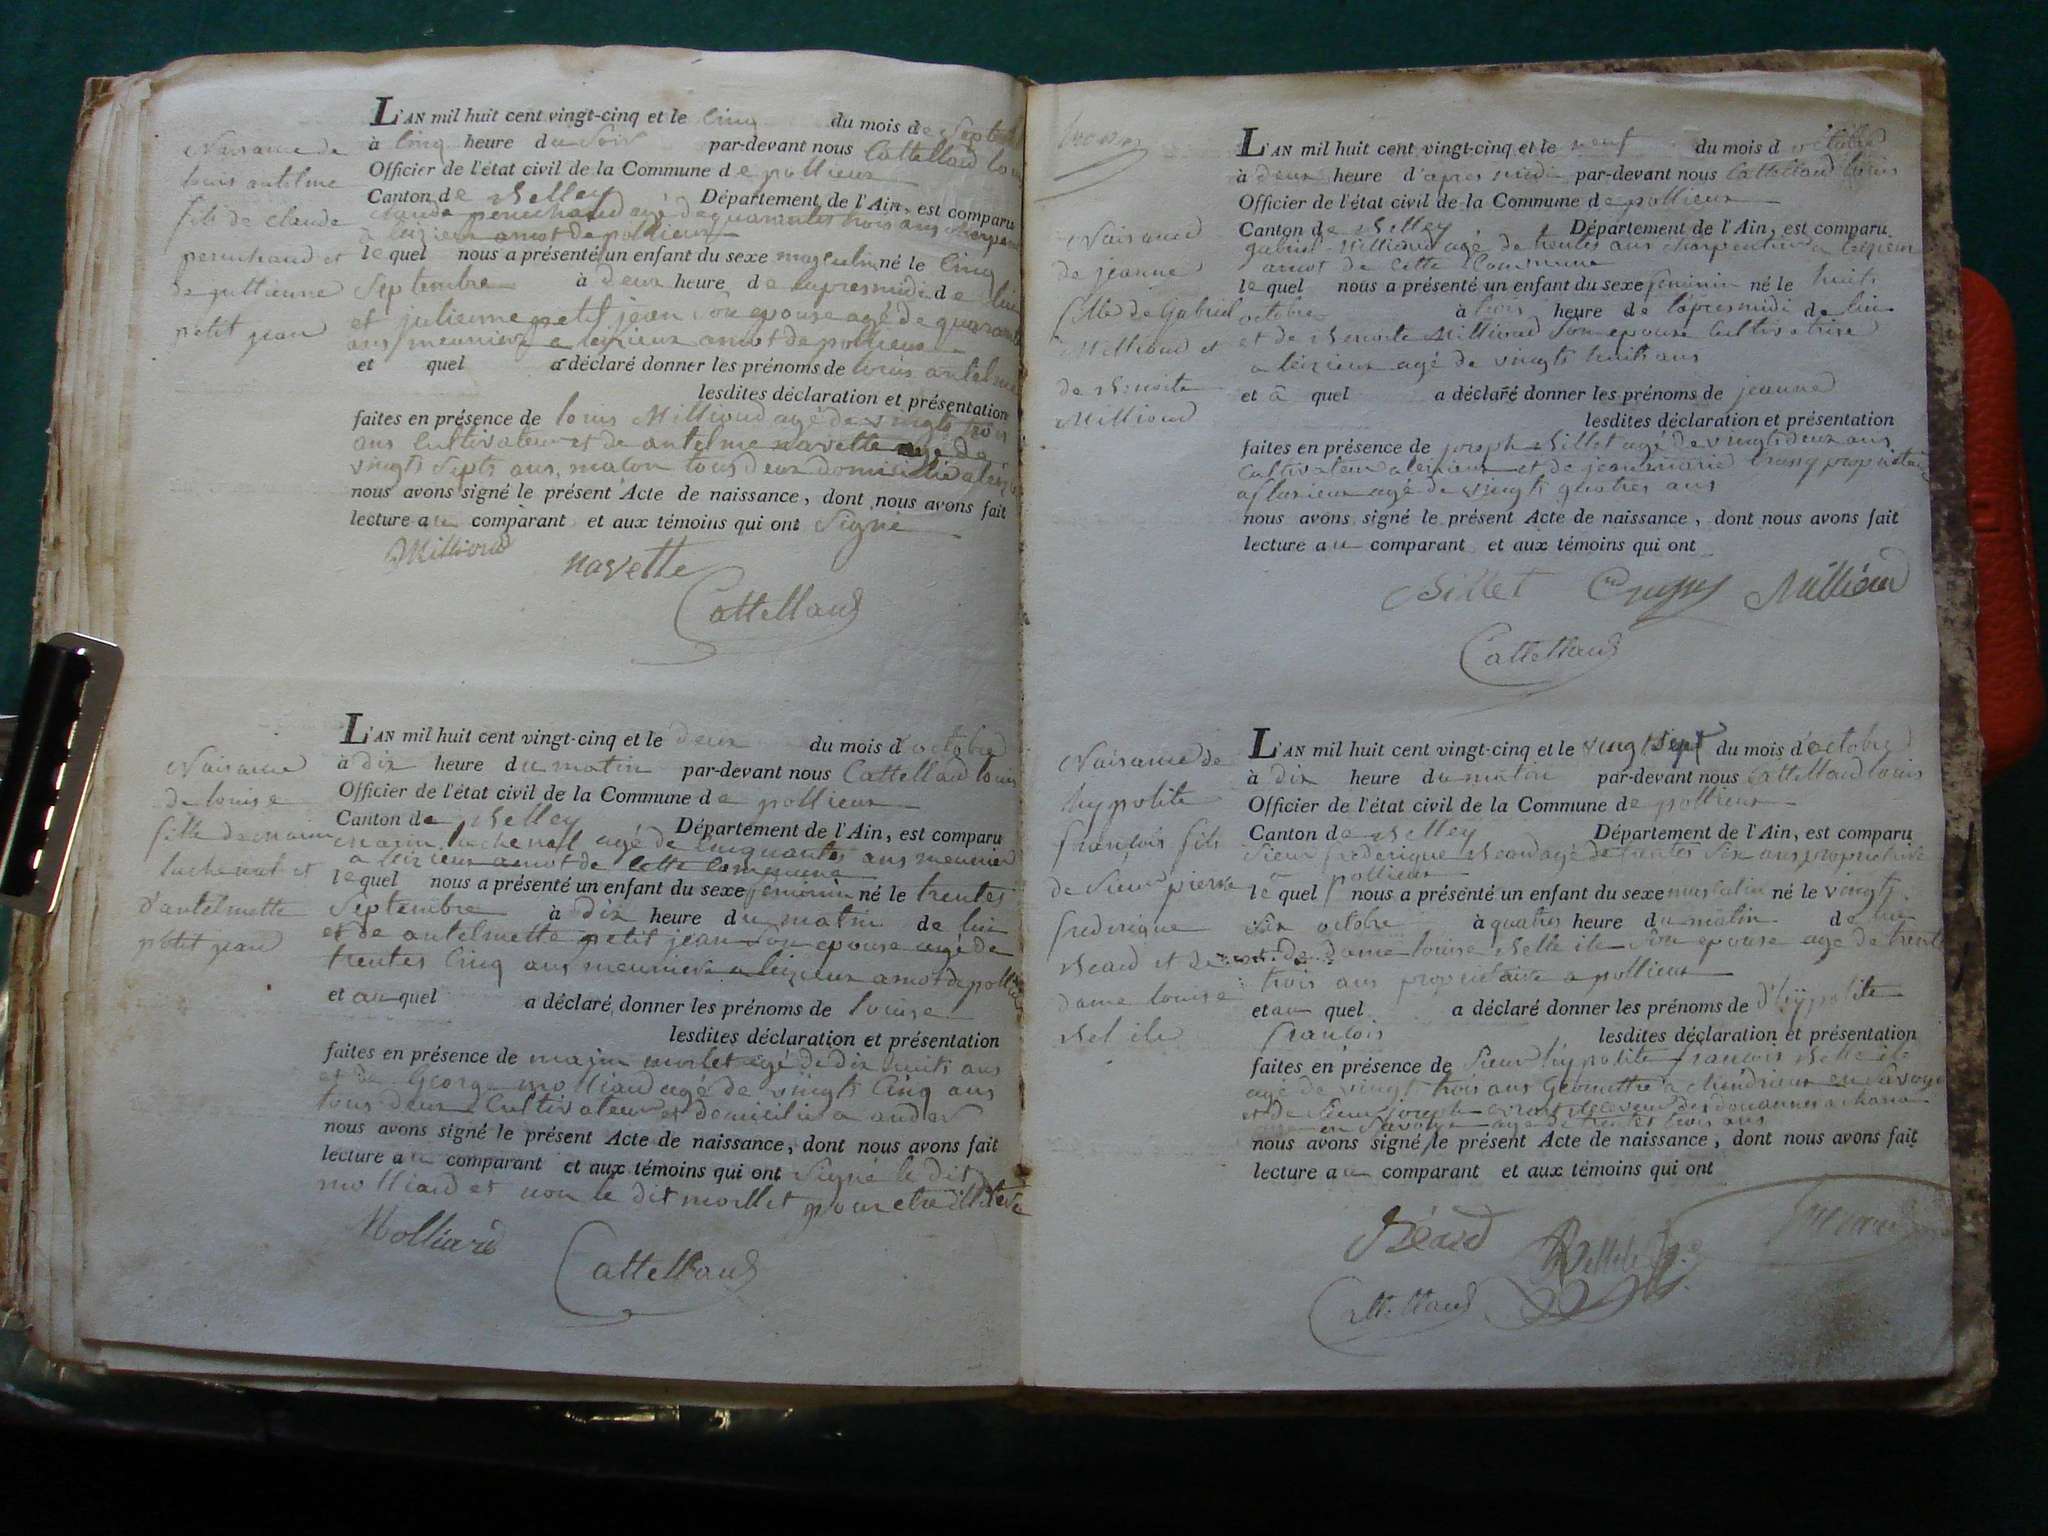 Naisance de
louis antelme
fils de claude
peruchaud et
de jullienne
petit jean
L'AN mil huit cent vingt-cinq et le cinq du mois de Septembre
à cinq heure du soir par-devant nous Cattelland louis
Officier de l'état civil de la Commune de pollieux
Canton de Belley Département de l'Ain, est comparu
claude peruchaud agé de quarantes trois ans
a leizieux amot de pollieux
lequel nous a présenté un enfant du sexe masculin né le cinq
Septembre à deux heure de lapresmidi de lui
et julienne petit jean son epouse agé de quarante
ans meuniere a leizieux amot de pollieux
et quel a déclaré donner les prénoms de louis antelme
lesdites déclaration et présentation
faites en présence de louis Millioud agé de vingts trois
ans Cultivateur et de antelme navette agé de
vingts septs ans, maton tous deux domicilié a leizieux
nous avons signé le présent Acte de naissance, dont nous avons fait
lecture au comparant et aux témoins qui ont Signé
Millioud navette
Cattelland
Naisance
de louise
fille de marin
luchenat et
d'antelmette
petit jean
L'AN mil huit cent vingt-cinq et le deux du mois d'octobre
à dix heure du matin par-devant nous Cattelland louis
Officier de l'état civil de la Commune de pollieux
Canton de Belley Département de l'Ain, est comparu
marin luchenat agé de cinquantes ans meunier
a leizieux amot de cette commune
lequel nous a présenté un enfant du sexe feminin né le trentes
Septembre à dix heure du matin de lui
et de antelmette petit jean son epouse agé de
trentes cinq ans meuniere a leizieux amot de pollieux
et au quel a déclaré donner les prénoms de louise
lesdites déclaration et présentation
faites en présence de marin morlet agé de dix huits ans
et de George molliard agé de vingts cinq ans
tous deux Cultivateur et domicilié a andert
nous avons signé le présent Acte de naissance, dont nous avons fait
lecture au comparant et aux témoins qui ont Signé le dit
molliard et non le dit morllet pour etre illitere
Molliard
Cattelland
Naisance
de jeanne
fille de Gabriel
Millioud et
de Benoite
Millioud
L'AN mil huit cent vingt-cinq et le neuf du mois d'octobre
à deux heure d'apres midi par-devant nous Cattelland louis
Officier de l'état civil de la Commune de pollieux
Canton de Belley Département de l'Ain, est comparu
gabriel Millioud agé de trentes ans charpentier a leizieux
amot de cette Commune
lequel nous a présenté un enfant du sexe feminin né le huits
octobre à trois heure de lapresmidi de lui
et de Benoite Millioud son epouse cultivatrice
a leizieux agé de vingts huits ans
et a quel a déclaré donner les prénoms de jeanne
lesdites déclaration et présentation
faites en présence de joseph Billet agé de vingts deux ans
Cultivateur a leizieux et de jeanmarie propriétaire
a flaxieux agé de vingts quatres ans
nous avons signé le présent Acte de naissance, dont nous avons fait
lecture au comparant et aux témoins qui ont
Billet Millioud
Cattelland
Naisance de
hypolite
francois fils
de sieur pierre
frederique
Béard et de
dame louise
Bel ile
L'AN mil huit cent vingt-cinq et le vingt sept du mois d'octobre
à dix heure du matin par-devant nous Cattelland louis
Officier de l'état civil de la Commune de pollieux
Canton de Belley Département de l'Ain, est comparu
Sieur frederique Beard agé de trentes six ans propriétaire
a pollieux
lequel nous a présenté un enfant du sexe masculin né le vingt
six octobre à quatres heure du matin de lui
et de dame louise Belle ile son epouse age de trente
trois ans propriétaire a pollieux
et au quel a déclaré donner les prénoms de d'hypolite
francois lesdites déclaration et présentation
faites en présence de Sieur hypolite francois Belle ile
agé de vingt trois ans Geomettre a Chindrieux en Savoye
et de Sieur joseph Receveur des douannes a Chana
en Savoye agé de trente trois ans
nous avons signé le présent Acte de naissance, dont nous avons fait
lecture au comparant et aux témoins qui ont
Béard
Cattelland